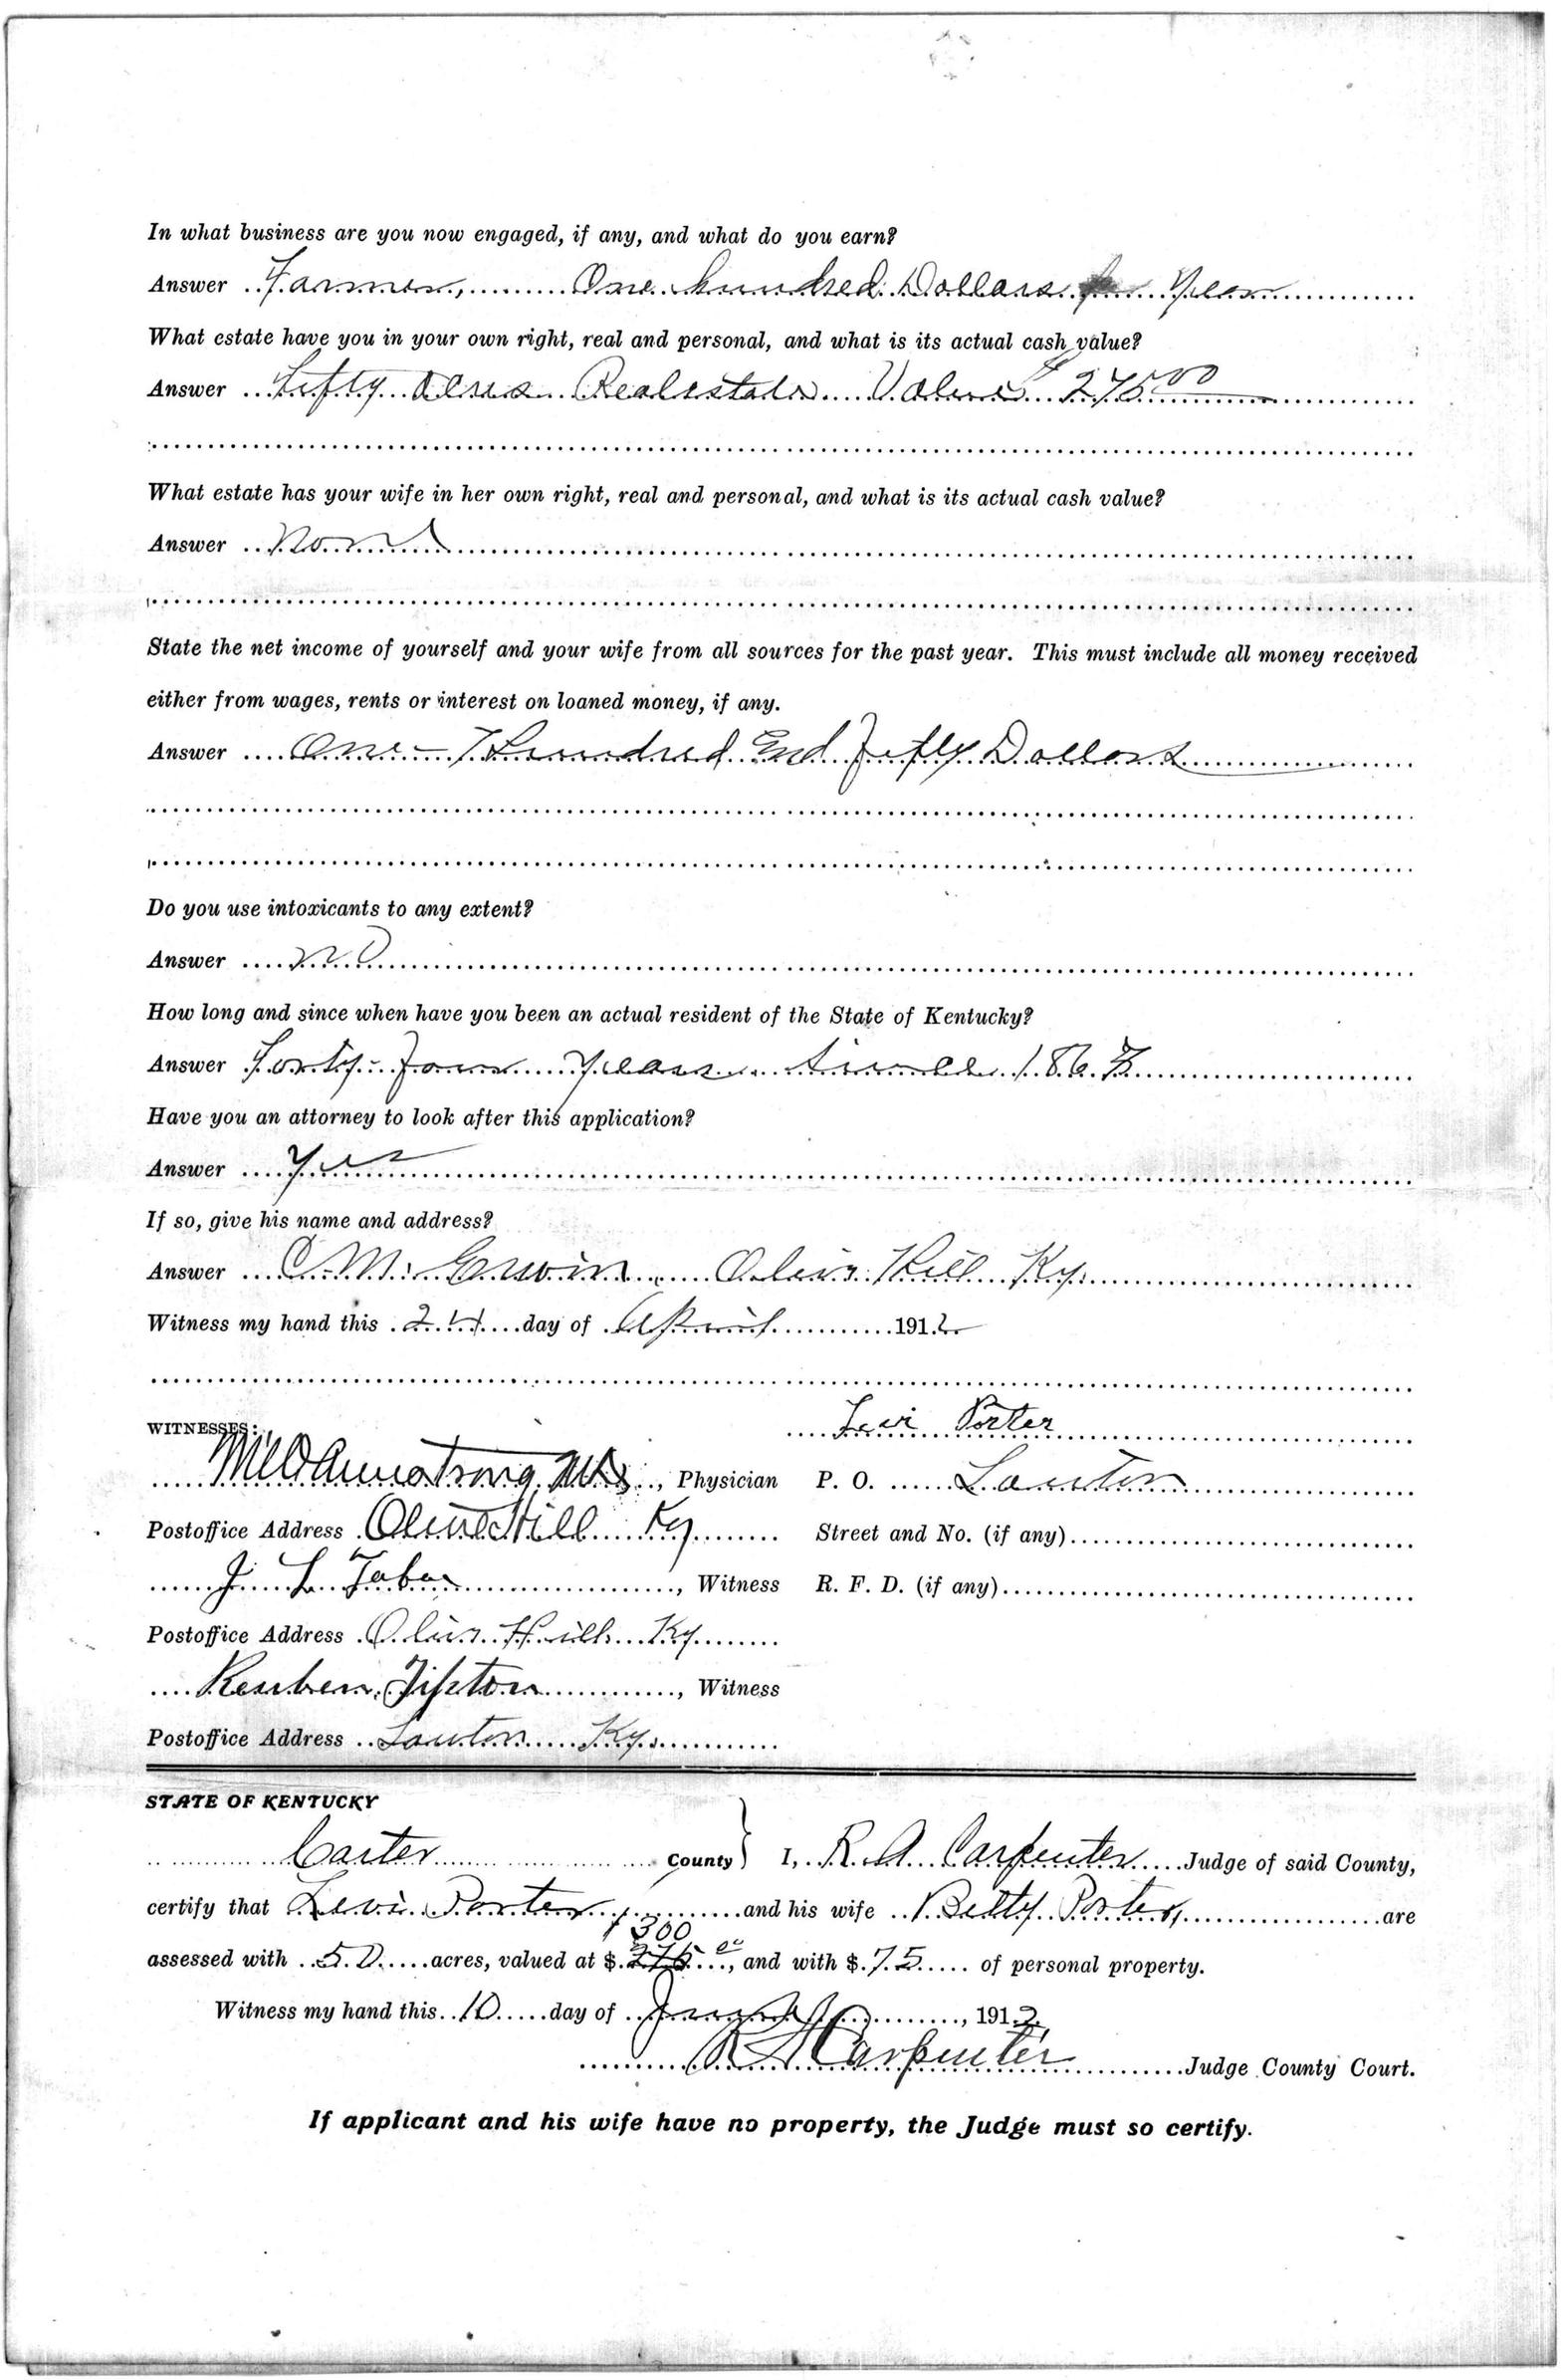 In what business are you now engaged, if any, and what do you earn?
Answer Farmer, One hundred Dollars Year
What estate have you in your own right, real and personal, and what is its actual cash value?
Answer Fifty Acres Realestate Value $ 275.00
What estate has your wife in her own right, real and personal, and what is its actual cash value?
Answer None
State the net income of yourself and your wife from all sources for the past year. This must include all money received
either from wages, rents or interest on loaned money, if any.
Answer One - Hundred and Fifty Dollars
Do you use intoxicants to any extent?
Answer no
How long and since when have you been an actual resident of the State of Kentucky?
Answer Forty-Four Years
Have you an attorney to look after this application?
Answer Yes
If so, give his name and address?
Answer C. M. Erwin, Olive Hill Ky.
Witness my hand this 24 day of April 1912
WITNESSES:
Levi Porter
Armstrong, M.D., Physician P. O. Lawton
Postoffice Address Olive Hill Ky Street and No. (if any)
J. L. Tabor, Witness R. F. D. (if any)
Postoffice Address Olive Hill Ky
Reuben Tipton, Witness
Postoffice Address Lawton Ky.
STATE OF KENTUCKY
Carter County } I, R. A. Carpenter Judge of said County,
certify that Levi Porter and his wife Betty Porter, are
300
assessed with 50 acres, valued at $ 275.00, and with $ 75 of personal property.
Witness my hand this 10 day of , 1912,
R A Carpenter Judge County Court.
If applicant and his wife have no property, the Judge must so certify.